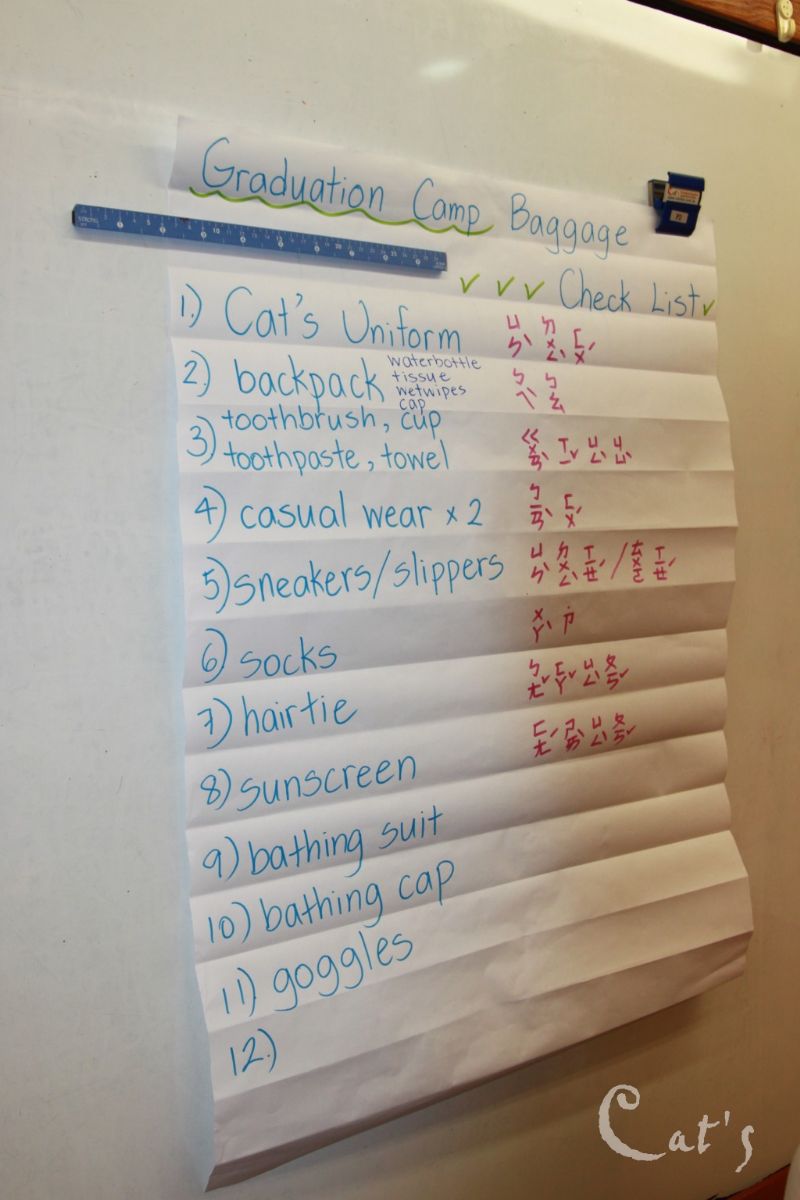 Graduation Camp Baggage
✓ ✓ ✓ Check List ✓
1.) Cat's Uniform ㄩㄣˋ ㄉㄨㄥˋ ㄈㄨˊ
2.) backpack ㄅㄟ ㄅㄠ
waterbottle
tissue
wetwipes
cap
3) toothbrush, cup
toothpaste, towel ㄍㄨㄢˋ ㄒㄧˇ ㄩㄥˋ ㄐㄩˋ
4) casual wear x 2 ㄅㄧㄢˋ ㄈㄨˊ
5) sneakers/slippers ㄩㄣˋ ㄉㄨㄥˋ ㄒㄧㄝˊ / ㄊㄨㄛ ㄒㄧㄝˊ
6) socks ㄨㄚˋ ˙ㄗ
7) hairtie ㄅㄤˇ ㄈㄚˇ ㄩㄥˋ ㄆㄧㄣˇ
8) sunscreen ㄈㄤˊ ㄕㄞˋ ㄩㄥˋ ㄆㄧㄣˇ
9) bathing suit
10) bathing cap
11) goggles
12.)
Cat's